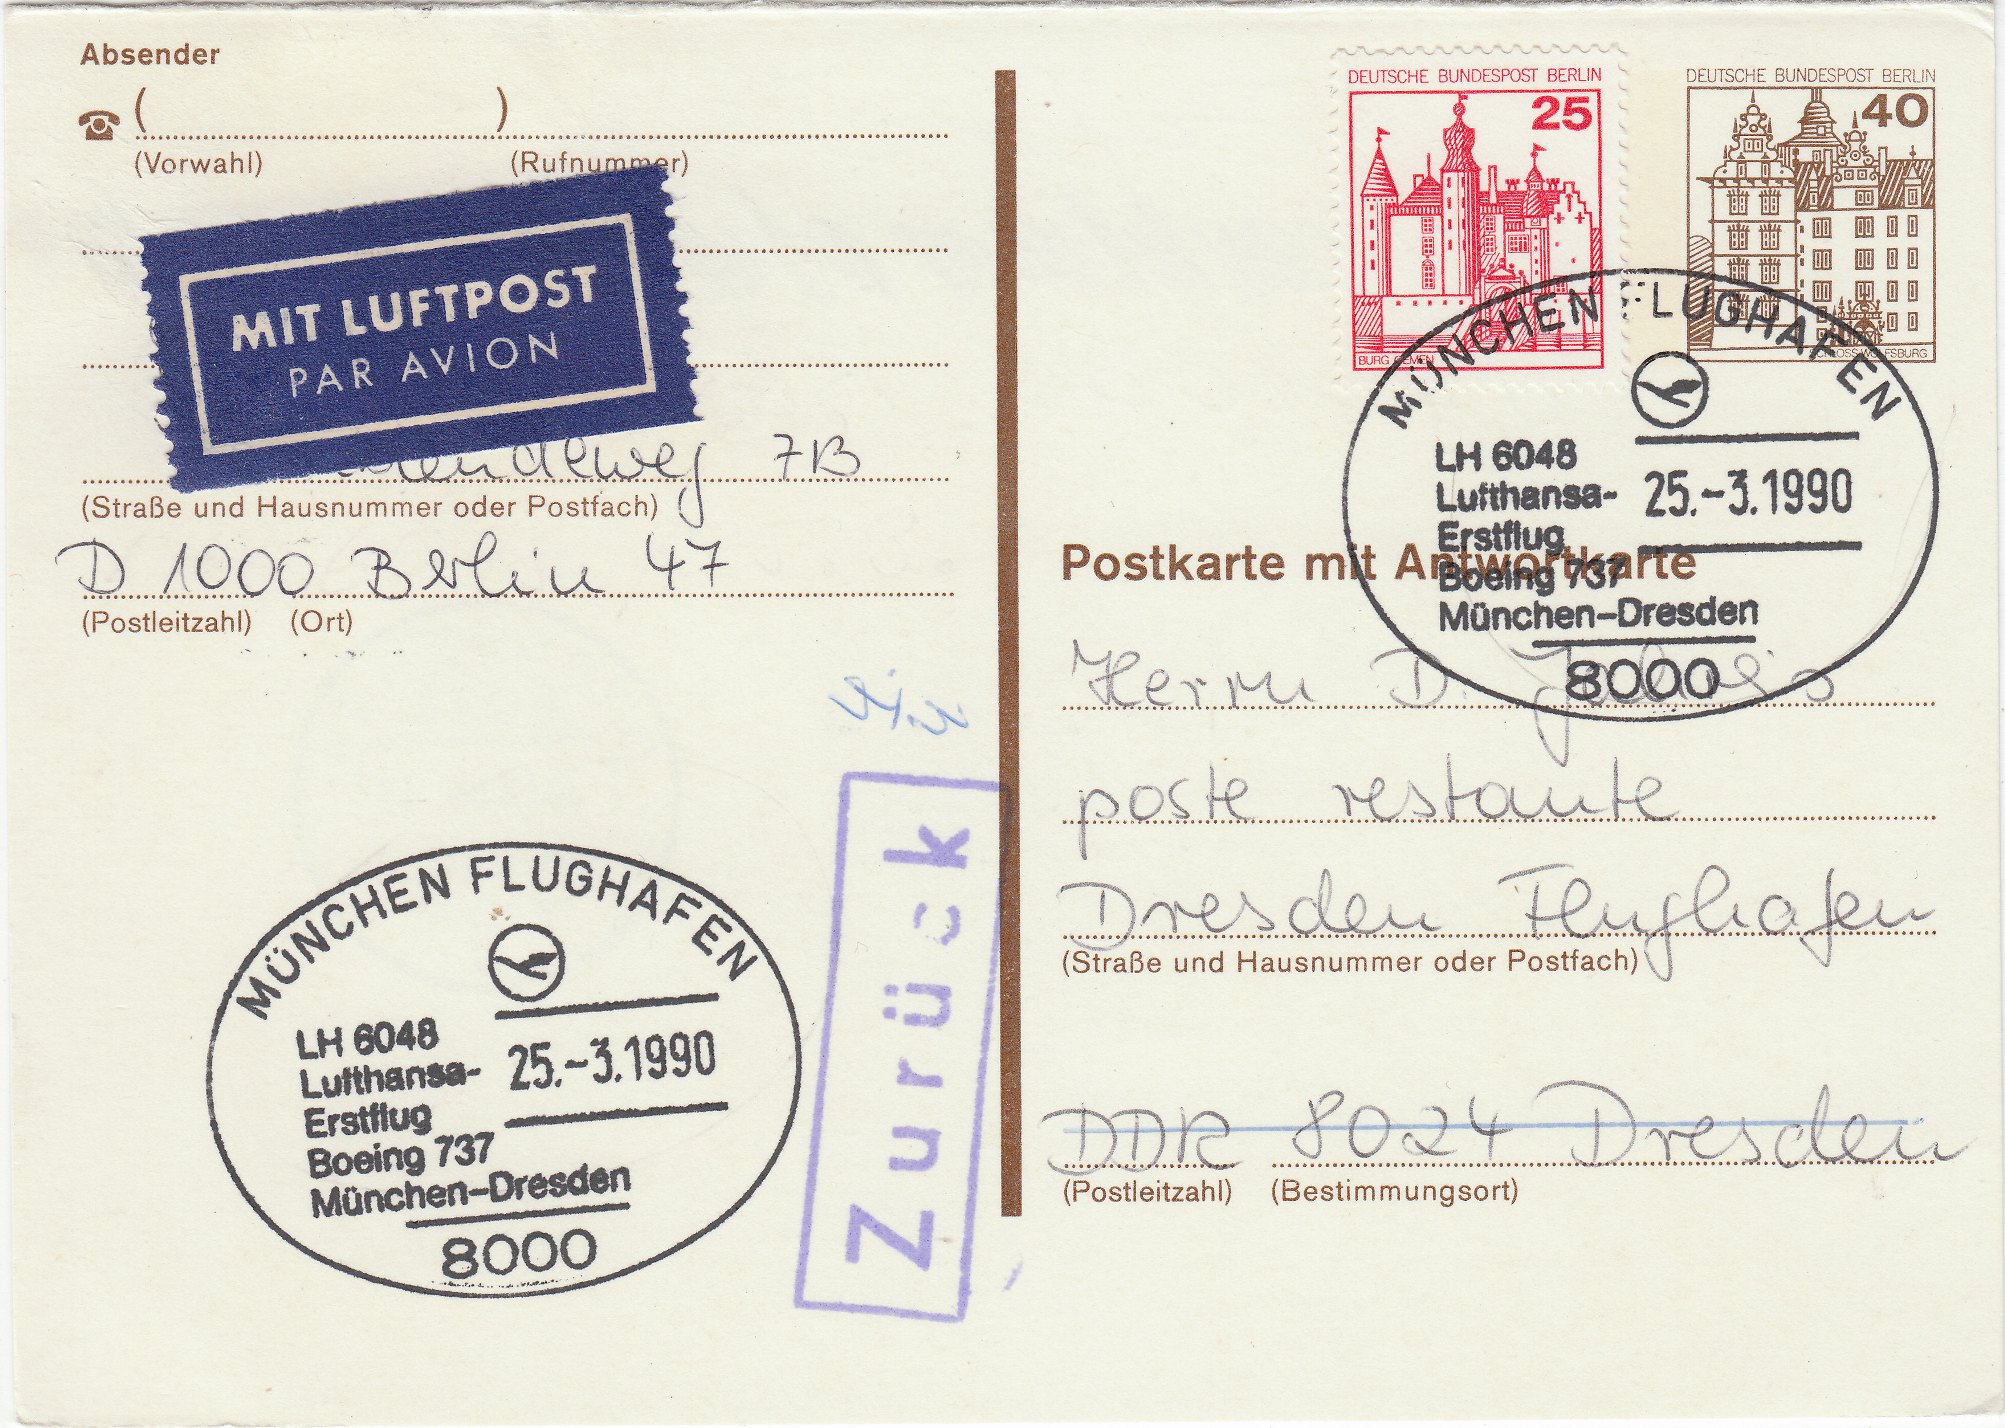 Absender
( )
(Vorwahl) (Rufnummer)
MIT LUFTPOST
PAR AVION
7B
(Straße und Hausnummer oder Postfach)
D 1000 Berlin 47
(Postleitzahl) (Ort)
MÜNCHEN FLUGHAFEN
LH 6048
Lufthansa-
Erstflug
Boeing 737
München-Dresden
25.-3.1990
8000
Zurück
DEUTSCHE BUNDESPOST BERLIN
25
BURG GEMEN
DEUTSCHE BUNDESPOST BERLIN
40
SCHLOSS WOLFSBURG
MÜNCHEN FLUGHAFEN
LH 6048
Lufthansa-
Erstflug
Boeing 737
München-Dresden
25.-3.1990
8000
Postkarte mit Antwortkarte
Herrn D.
poste restante
Dresden Flughafen
(Straße und Hausnummer oder Postfach)
DDR 8024 Dresden
(Postleitzahl) (Bestimmungsort)